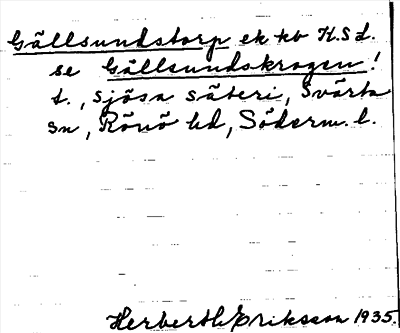 Gällsundstorp ek kb H.S d.
se Gällsundskrogen!
t., Sjösa säteri, Svärta
sn, Rönö hd, Söderm. l.
Herberth Eriksson 1935.